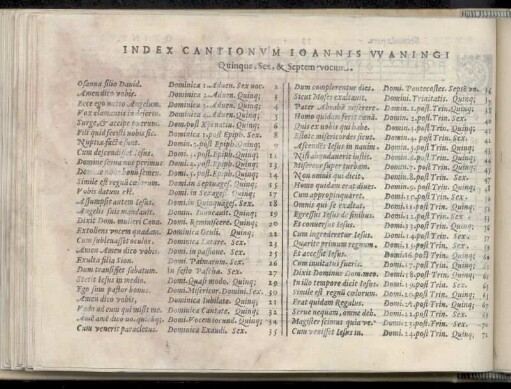 INDEX CANTIONVM IOANNIS VVANINGI
Quinque, Sex, & Septem vocum.
Osanna filio David. Dominica 1. Aduen. Sex voc. 2
Amen dico vobis. Dominica 2. Aduen. Quinq;
Ecce ego mitto Angelum. Dominica 3. Aduen. Quinq;
Vox clamantis in deserto. Dominica 4. Aduen. Quinq;
Surge, & accipe puerum. Dom. post Quinq;
Fili quid fecisti nobis sic. Dominica 1. post Epiph. Sex. 8
Nuptiæ factæ sunt. Domin. 2. post Epiph. Quinq;
Cum descendisset Iesus. Domi. 3. post Epiph. Quinq; 11
Domine Domi. 4. post Epiph. Quinq;
Domine bonū semen. Domi. 5. post Epiph. Quinq; 14
Simile est regnū cœlorum. Domi. in septuages. Quinq; 15
Vobis datum est. Domi. in Sexages. Quinq; 17
Assumpsit autem Iesus. Domi. in Quinquages. Sex. 18
Angelis suis mandauit. Domin. Inuocauit. Quinq;
Dixit Dom. mulieri Cana. Domi. Reminiscere. Quinq; 20
Extollens vocem quædam. Dominica Oculi. Quinq; 22
Cum subleuasset oculos. Dominica Lætare. Sex. 23
Amen amen dico vobis. Domi. in passione. Sex. 25
Exulta filia Sion. Domi. Palmarum. Sex. 26
Dum transisset sabatum. In festo Pascha. Sex. 27
Stetit Iesus in medio. Domi. Quasi modo. Quinq; 29
Ego sum pastor bonus. Domi. Misericor. Domini. Sex. 30
Amen dico vobis, Dominica Iubilate. Quinq; 31
Vado ad eum qui misit me. Dominica Cantate. Quinq; 32
Amē amē dico vo. Domi. Vocem iocund. Quinq; 34
Cum venerit paracletus. Dominica Exaudi. Sex. 35
Dum complerentur dies. Domi. Pentecostes. Septē vo.
Sicut Moses exaltauit. Domini. Trinitatis. Quinq;
Pater Abrahā miserere. Domin. 1. post Trin. Quinq;
Homo quidam fecit cœnā. Domin. 2. post Trin. Quinq;
Quis ex vobis qui habet. Domin. 3. post Trin. Quinq;
Estote misericordes sicut. Domi. 4. post Trin. Sex.
Ascendēs Iesus in nauim. Domi. 5. post Trin. Quinq;
Nisi abundauerit iustit. Domin. 6. post Trin. Quinq;
Misereor super turbam. Domin. 7. post Trin. Quinq;
Non omnis qui dicit. Domin. 8. post Trin. Quinq;
Homo quidam erat diues. Domin. 9. post Trin. Sex.
Cum appropinquaret. Domin. 10. post Trin. Sex.
Omnis qui se exaltat. Domin. 11. post Trin. Quinq;
Egressus Iesus de finibus. Domi. 12. post Trin. Sex.
Et conuersus Iesus. Domi. 13. post Trin. Quinq;
Cum ingrederetur Iesus. Domi. 14. post Trin. Quinq;
Quærite primum regnum. Domi. 15. post Trin. Sex.
Et accessit Iesus. Domi. 16. post Trin. Quinq;
Cum inuitatus fueris. Domi. 17. post Trin. Sex.
Dixit Dominus Dom. meo. Domi. 18. post Trin. Quinq;
In illo tempore dicit Iesus. Domi. 19. post Trin. Sex.
Simile est regnū cœlorum. Domi. 20. post Trin. Quinq;
Erat quidam Regulus. Domi. 21. post Trin. Quinq;
Serue nequam, omne deb. Domi. 22. post Trin. Quinq;
Magister scimus quia ve. Domi. 23. post Trin. Sex. 70
Cum venisset Iesus in. Domi. 24. post Trin. Quinq; 72